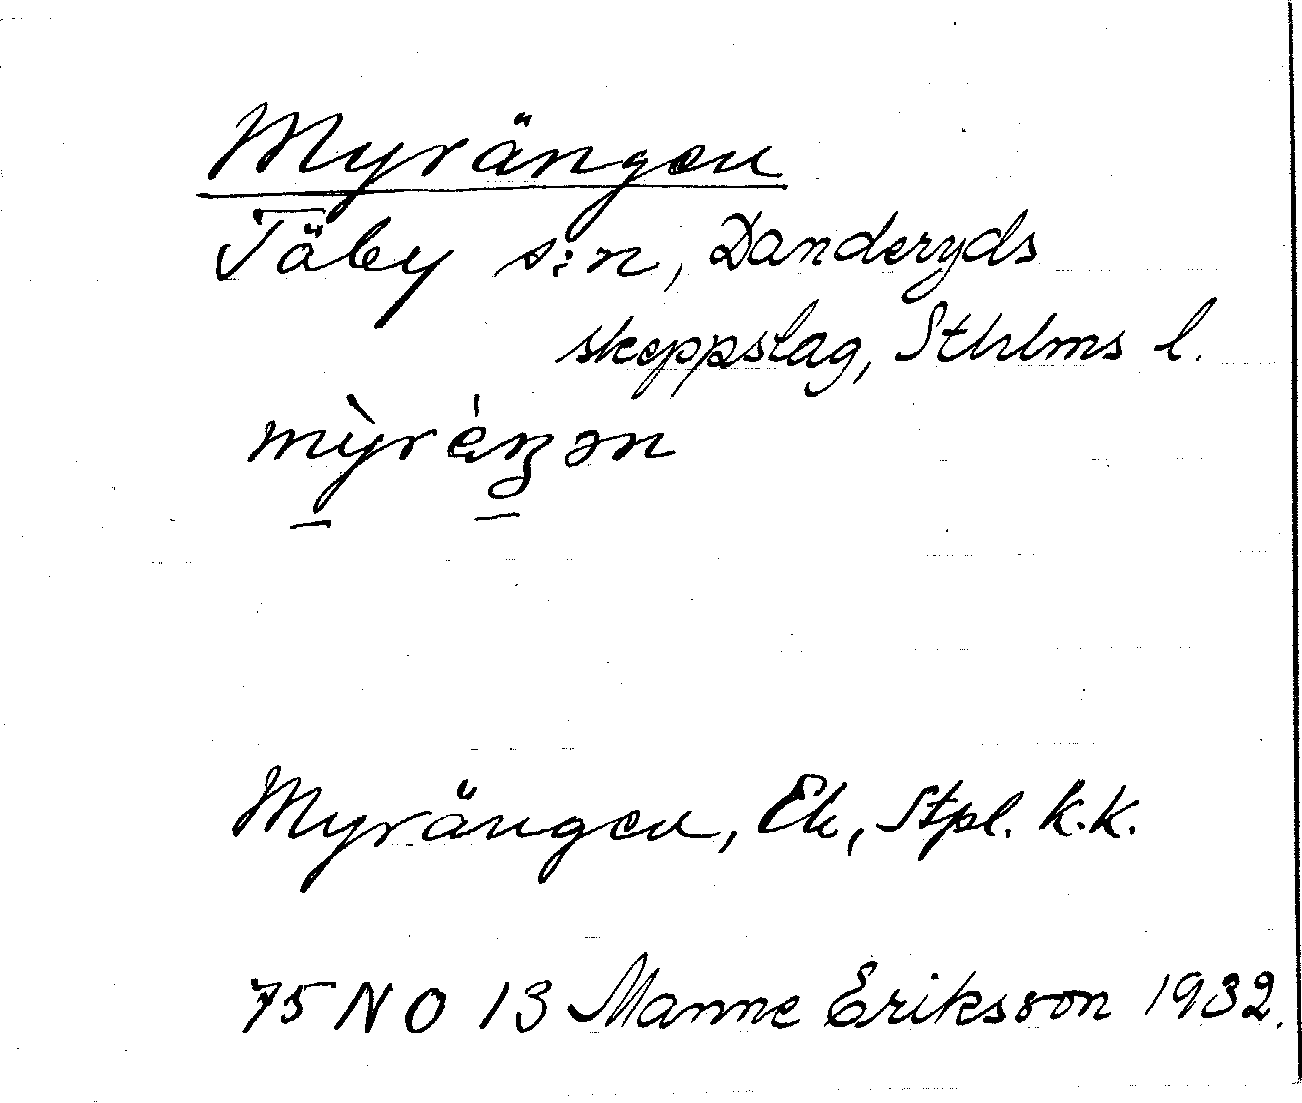 Myrängen
Täby s:n, Danderyds
skeppslag, Sthlms l.
mỳréŋən
Myrängen, Ek, Stpl. k.k.
75 NO 13 Manne Eriksson 1932.